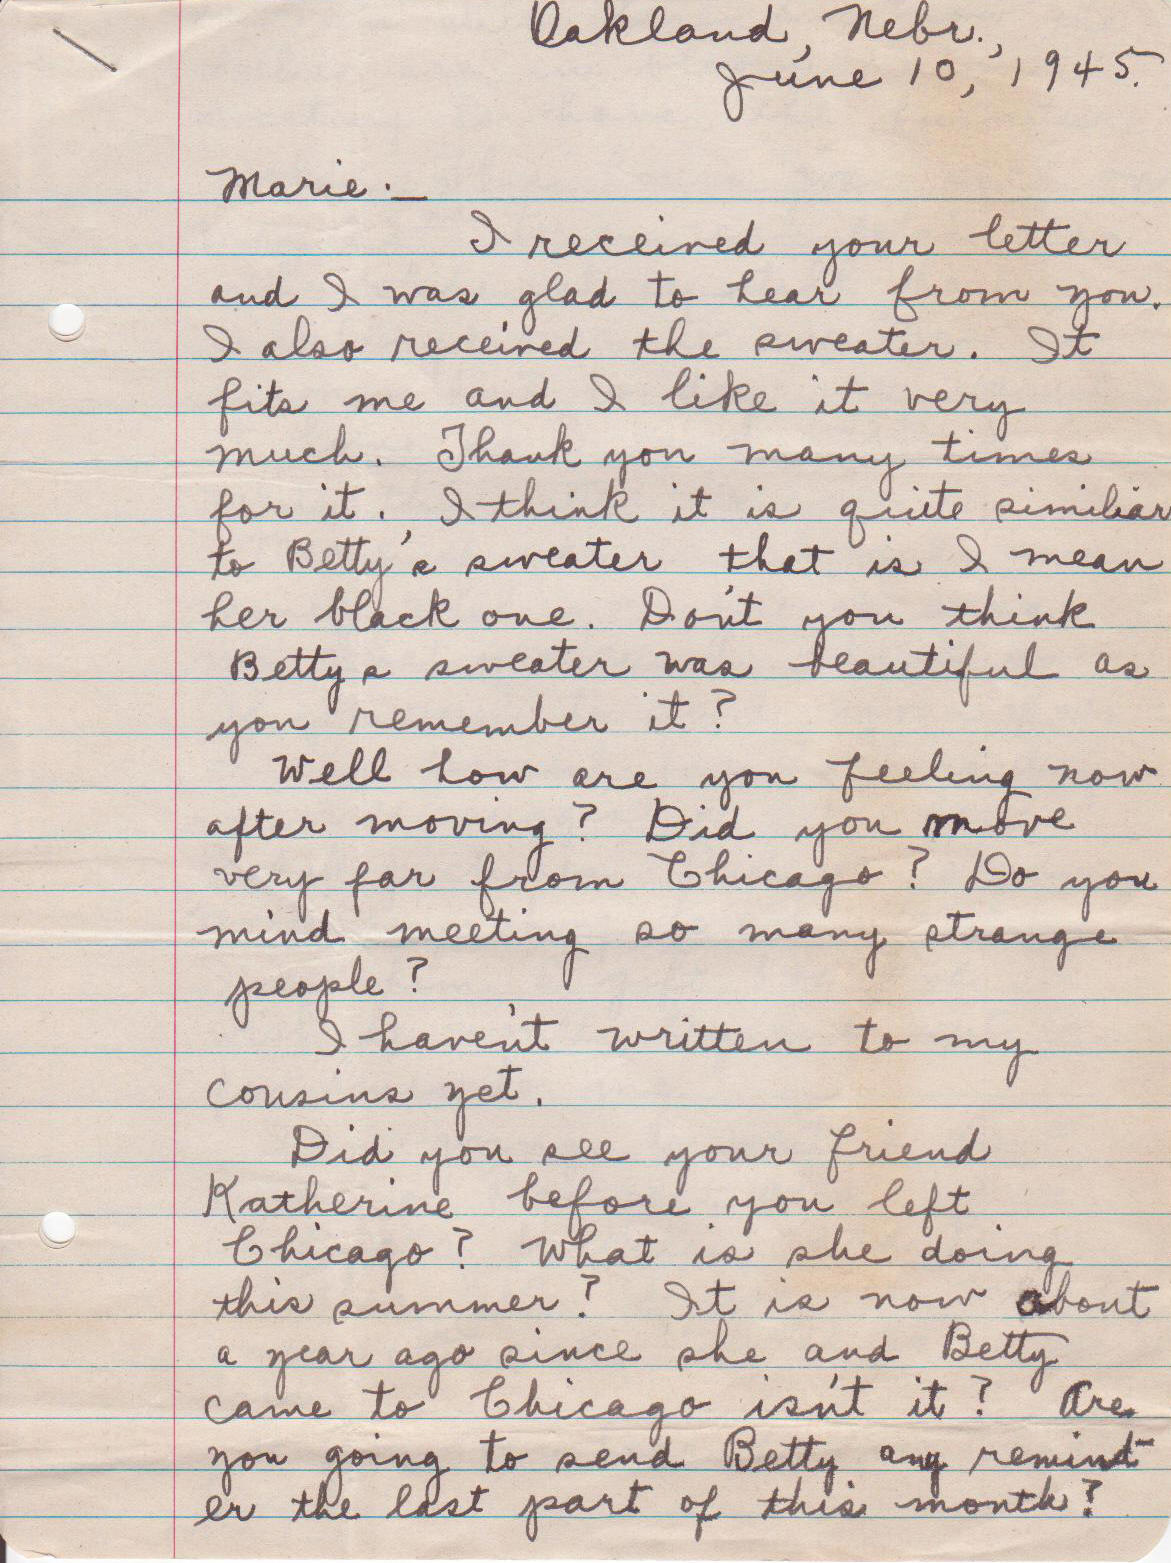 Oakland, Nebr.,
June 10, 1945.
Marie:—
I received your letter
and I was glad to hear from you.
I also received the sweater. It
fits me and I like it very
much. Thank you many times
for it. I think it is quite similiar
to Betty's sweater that is I mean
her black one. Don't you think
Bettys sweater was beautiful as
you remember it?
Well how are you feeling now
after moving? Did you move
very far from Chicago? Do you
mind meeting so many strange
people?
I haven't written to my
cousins yet.
Did you see your friend
Katherine before you left
Chicago? What is she doing
this summer? It is now about
a year ago since she and Betty
came to Chicago isn't it? Are
you going to send Betty any remind-
er the last part of this month?